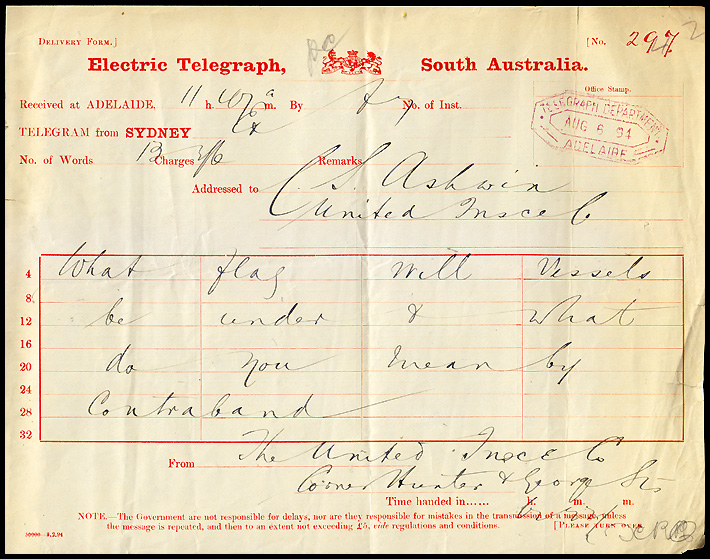 DELIVERY FORM.] [No. 297
Electric Telegraph, South Australia.
Office Stamp.
Received at ADELAIDE, 11 h. m. By No. of Inst.
TELEGRAPH DEPARTMENT
AUG 6 94
ADELAIDE
TELEGRAM from SYDNEY
No. of Words 13 Charges 3/6 Remarks
Addressed to C. S. Ashwin
United Insce Co
4 What flag will Vessels
8
12 be under & what
16
20 do you mean by
24
28 Contraband
32
From The United Insce Co
Corner Hunter & George Sts
Time handed in...... h. m. m.
NOTE.—The Government are not responsible for delays, nor are they responsible for mistakes in the transmission of a message, unless
the message is repeated, and then to an extent not exceeding £5, vide regulations and conditions. [PLEASE TURN OVER